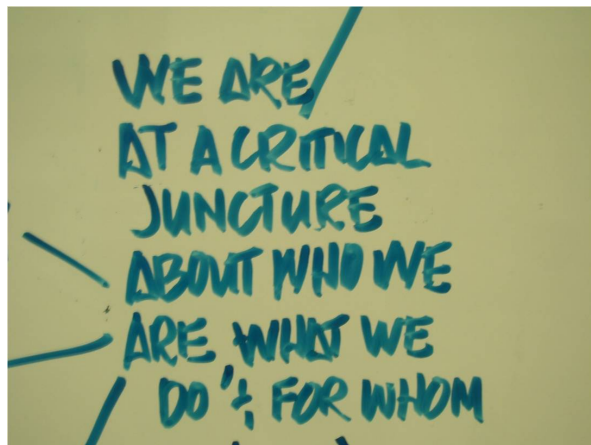 WE ARE
AT A CRITICAL
JUNCTURE
ABOUT WHO WE
ARE WHAT WE
DO & FOR WHOM